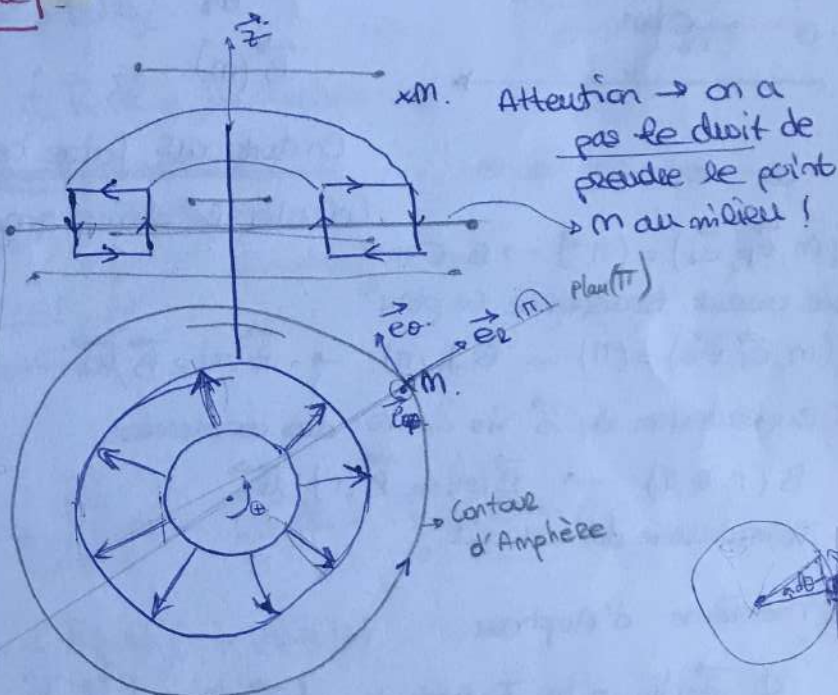 z
xM.
Attention → on a
pas le droit de
prendre le point
M au milieu !
eθ
(π)
plan (π)
eR
M.
⊕
Contour
d'Amphère
dθ